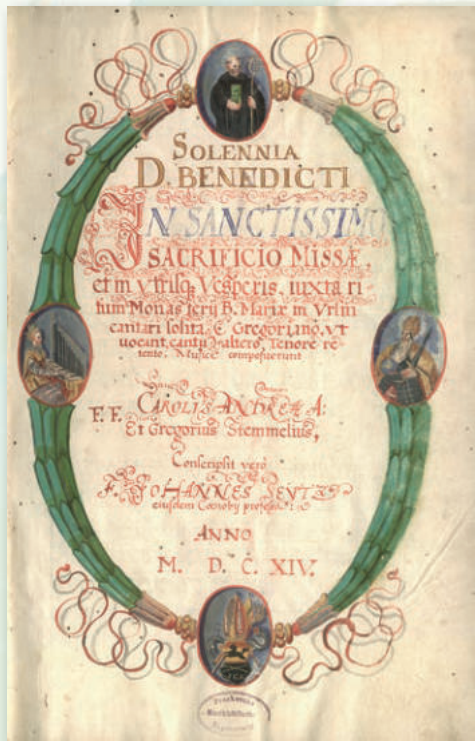 SOLENNIA
D. BENEDICTI
IN SANCTISSIMO
SACRIFICIO MISSÆ,
et in vtrisq₃ Vesperis, iuxta ri-
tum Monasterij B. Mariæ in Vrsin
cantari solita, E Gregoriano, vt
vocant, cantu altero, Tenore re-
tento, Musice composuerunt
F. F. CAROLVS ANDREÆ
Et Gregorius Stemmelius,
Conscripsit vero
F. IOHANNES SEVTZ
eiusdem Coenobij professus
ANNO
M. D. C. XIV.